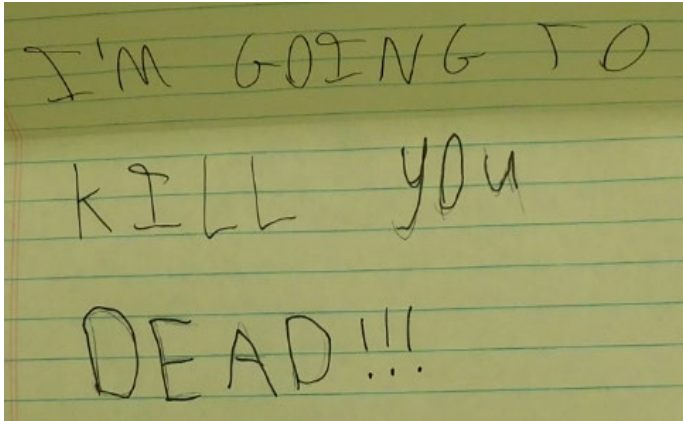 I'M GOING TO
KILL YOU
DEAD!!!